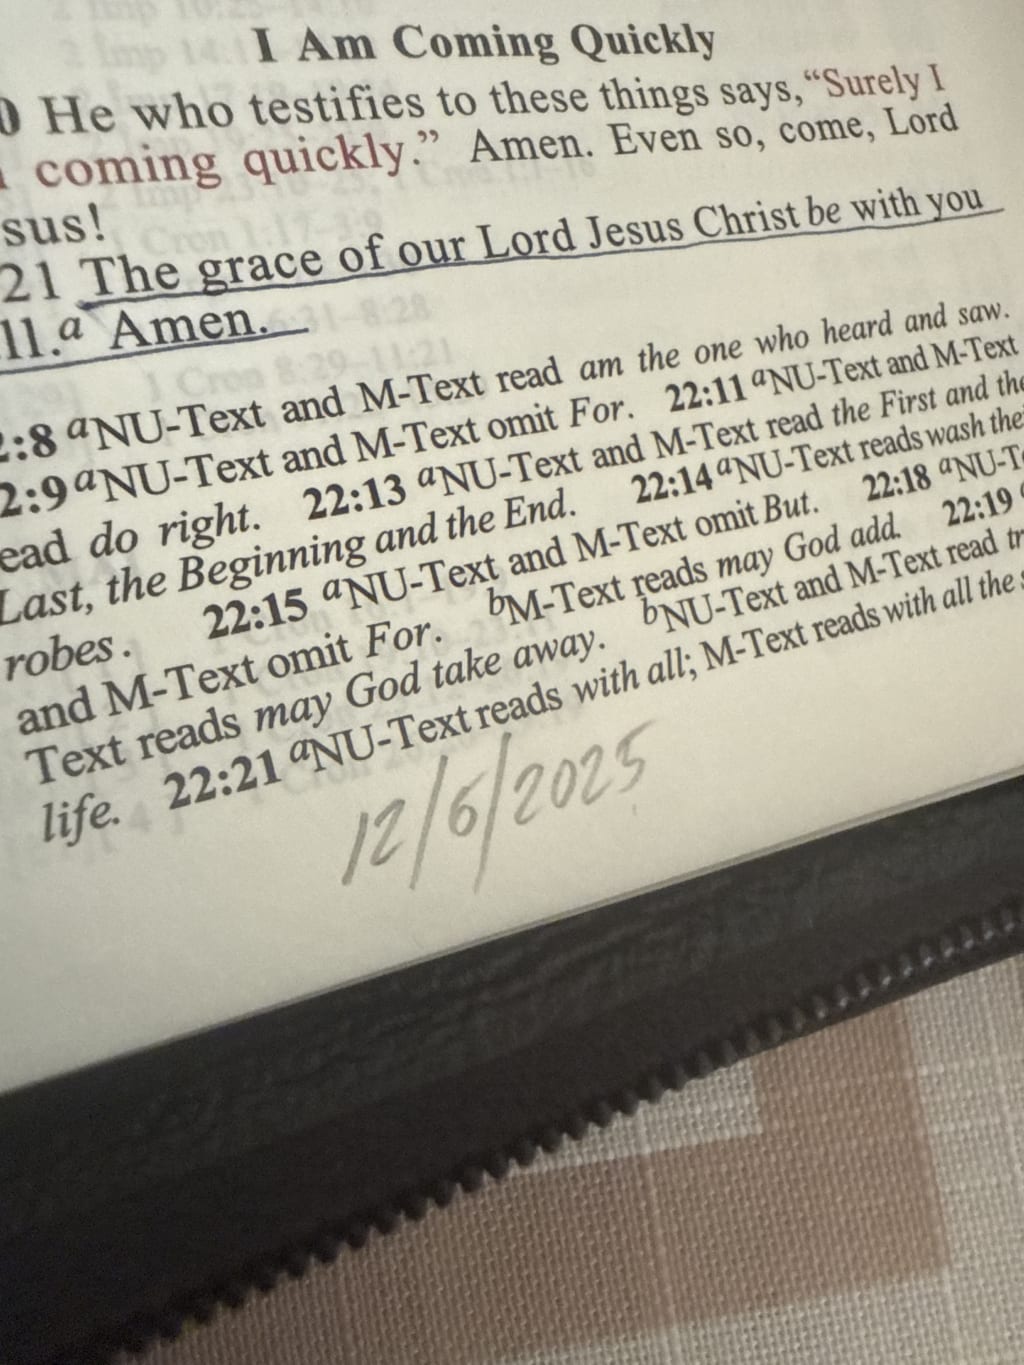 I Am Coming Quickly
0 He who testifies to these things says, “Surely I
coming quickly.” Amen. Even so, come, Lord
sus!
21 The grace of our Lord Jesus Christ be with you
ll.a Amen.
2:8 aNU-Text and M-Text read am the one who heard and saw.
2:9 aNU-Text and M-Text omit For. 22:11 aNU-Text and M-Text
ead do right. 22:13 aNU-Text and M-Text read the First and the
Last, the Beginning and the End. 22:14 aNU-Text reads wash thei
robes. 22:15 aNU-Text and M-Text omit But. 22:18 aNU-Te
and M-Text omit For. bM-Text reads may God add. 22:19
Text reads may God take away. bNU-Text and M-Text read tr
life. 22:21 aNU-Text reads with all; M-Text reads with all the s
12/6/2025